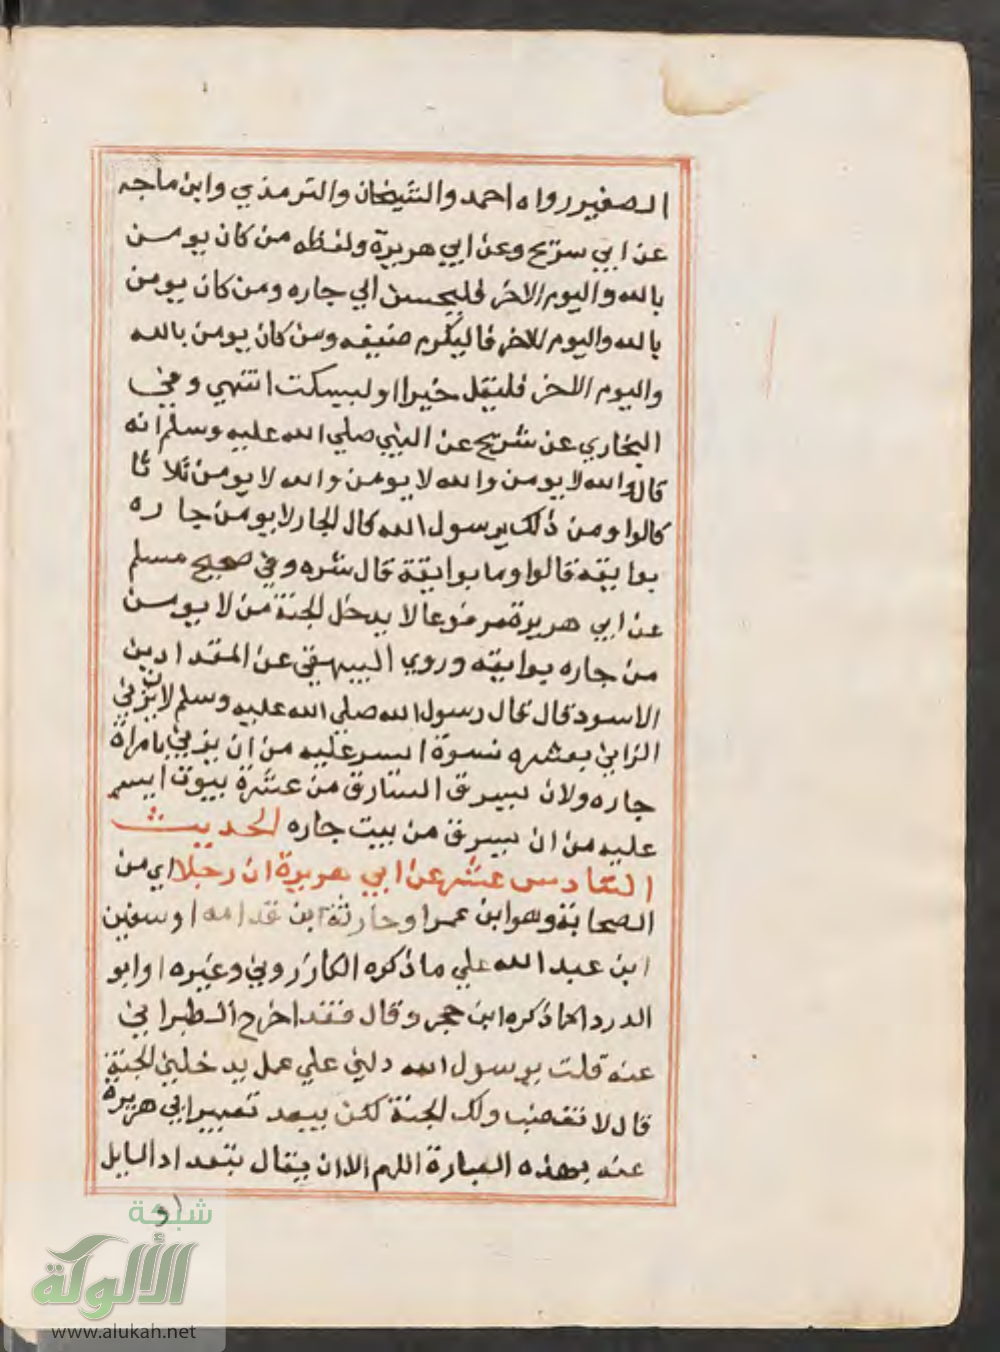 الصغير رواه احمد والشيخان والترمذي وابن ماجه
عن ابي سريح وعن ابي هريرة ولفظه من كان يومن
بالله واليوم الاخر فليحسن الي جاره ومن كان يومن
بالله واليوم الاخر فاليكرم ضيفه ومن كان يومن بالله
واليوم الاخر فليقل خيرا او ليسكت انتهي وفي
البخاري عن شريح عن النبي صلي الله عليه وسلم انه
قال والله لا يومن والله لا يومن والله لا يومن ثلاثا
قالوا ومن ذلك يرسول الله قال الجار لا يومن جاره
بوايقه قالوا وما بوايقه قال شره وفي صحيح مسلم
عن ابي هريرة مرفوعا لا يدخل الجنة من لا يومن
من جاره بوايقه وروي البيهقي عن المقداد بن
الاسود قال قال رسول الله صلي الله عليه وسلم لان يزني
الزاني بعشره نسوة ايسر عليه من ان يزني بامراة
جاره ولان يسرق السارق من عشرة بيوت ايسر
عليه من ان يسرق من بيت جاره الحديث
السادس عشر عن ابي هريرة ان رجلا اي من
الصحابة وهو ابن عمر او حارثة ابن قدامه او سفين
ابن عبد الله علي ما ذكره الكازروني وغيره او ابو
الدردا كما ذكره ابن حجر وقال فقد اخرج الطبراني
عنه قلت يرسول الله دلني علي عمل يدخلني الجنة
قال لا تغضب ولك الجنة لكن يبعد تعبير ابي هريرة
عنه بهذه العبارة اللهم الا ان يقال بتعداد السايل
شبكة
الألوكة
www.alukah.net